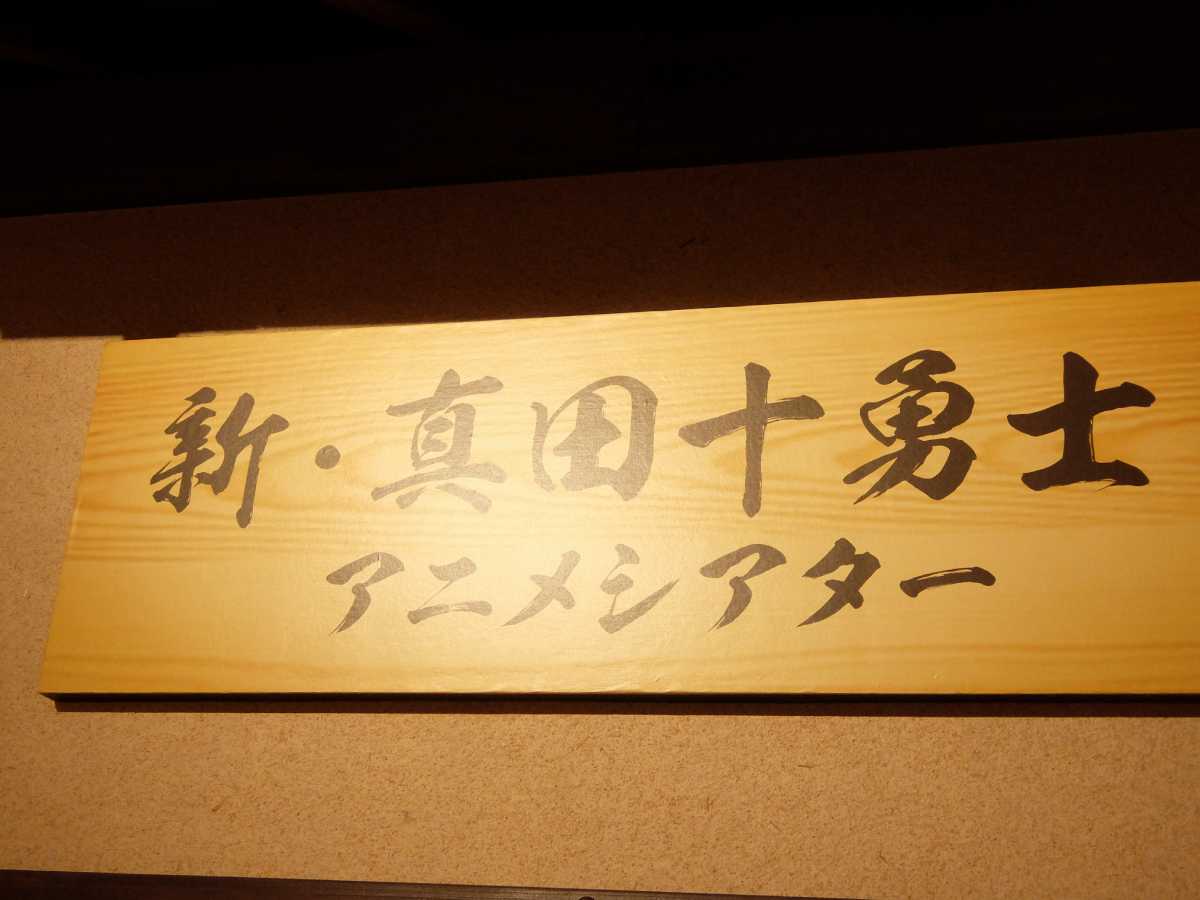 新・真田十勇士
アニメシアター